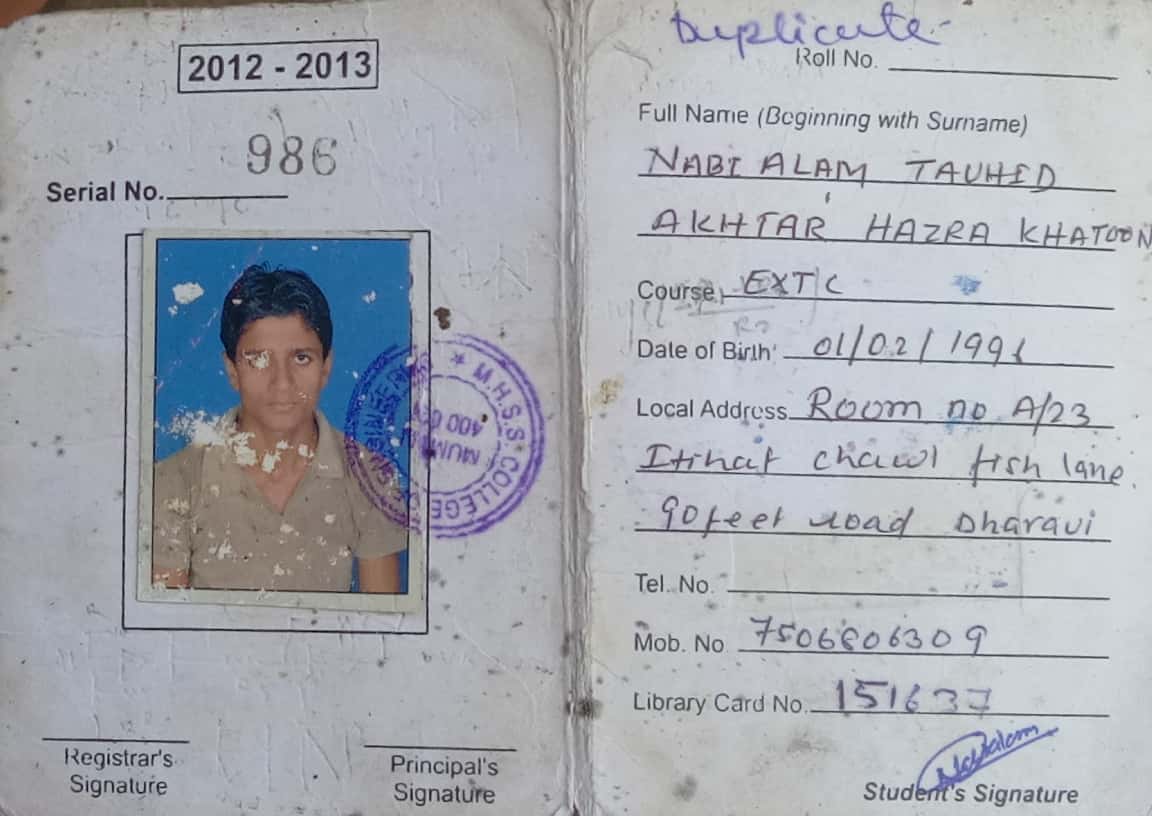 2012 - 2013
986
Serial No.
M.H.S.S. COLLEGE OF
MUMBAI
400
Registrar's
Signature
Principal's
Signature
Duplicate
Roll No.
Full Name (Beginning with Surname)
NABI ALAM TAUHID
AKHTAR HAZRA KHATOON
Course EXTC
Date of Birth 01/02/1991
Local Address Room no A/23
Itihat chawl fish lane
90 feet road Dharavi
Tel. No.
Mob. No 7506806309
Library Card No. 151637
Nabialam
Student's Signature